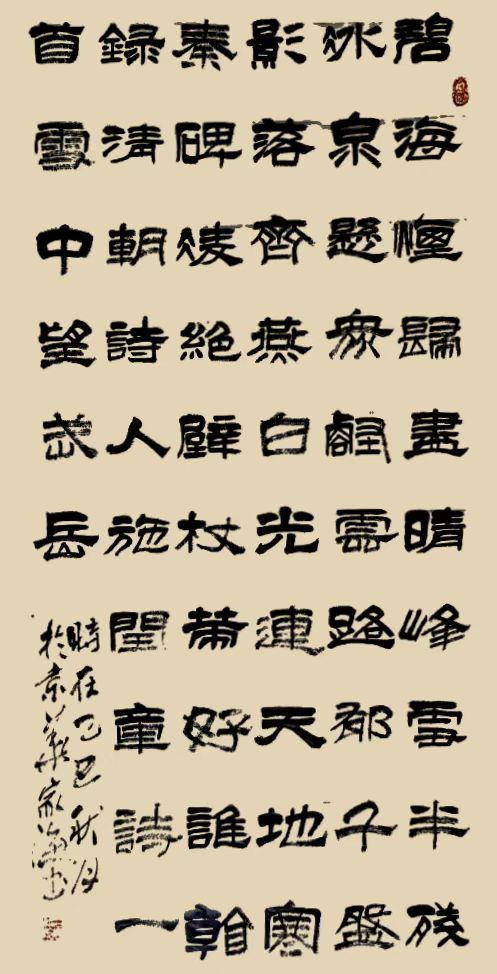 碧海煙歸盡晴峰雪半殘
冰泉懸衆壑雲路郁千盤
影落齊燕白光連天地寒
秦碑凌絕壁杖策好誰看
錄清朝詩人施閏章詩一
首雪中望岱岳
時在乙巳秋月
於京華家海書